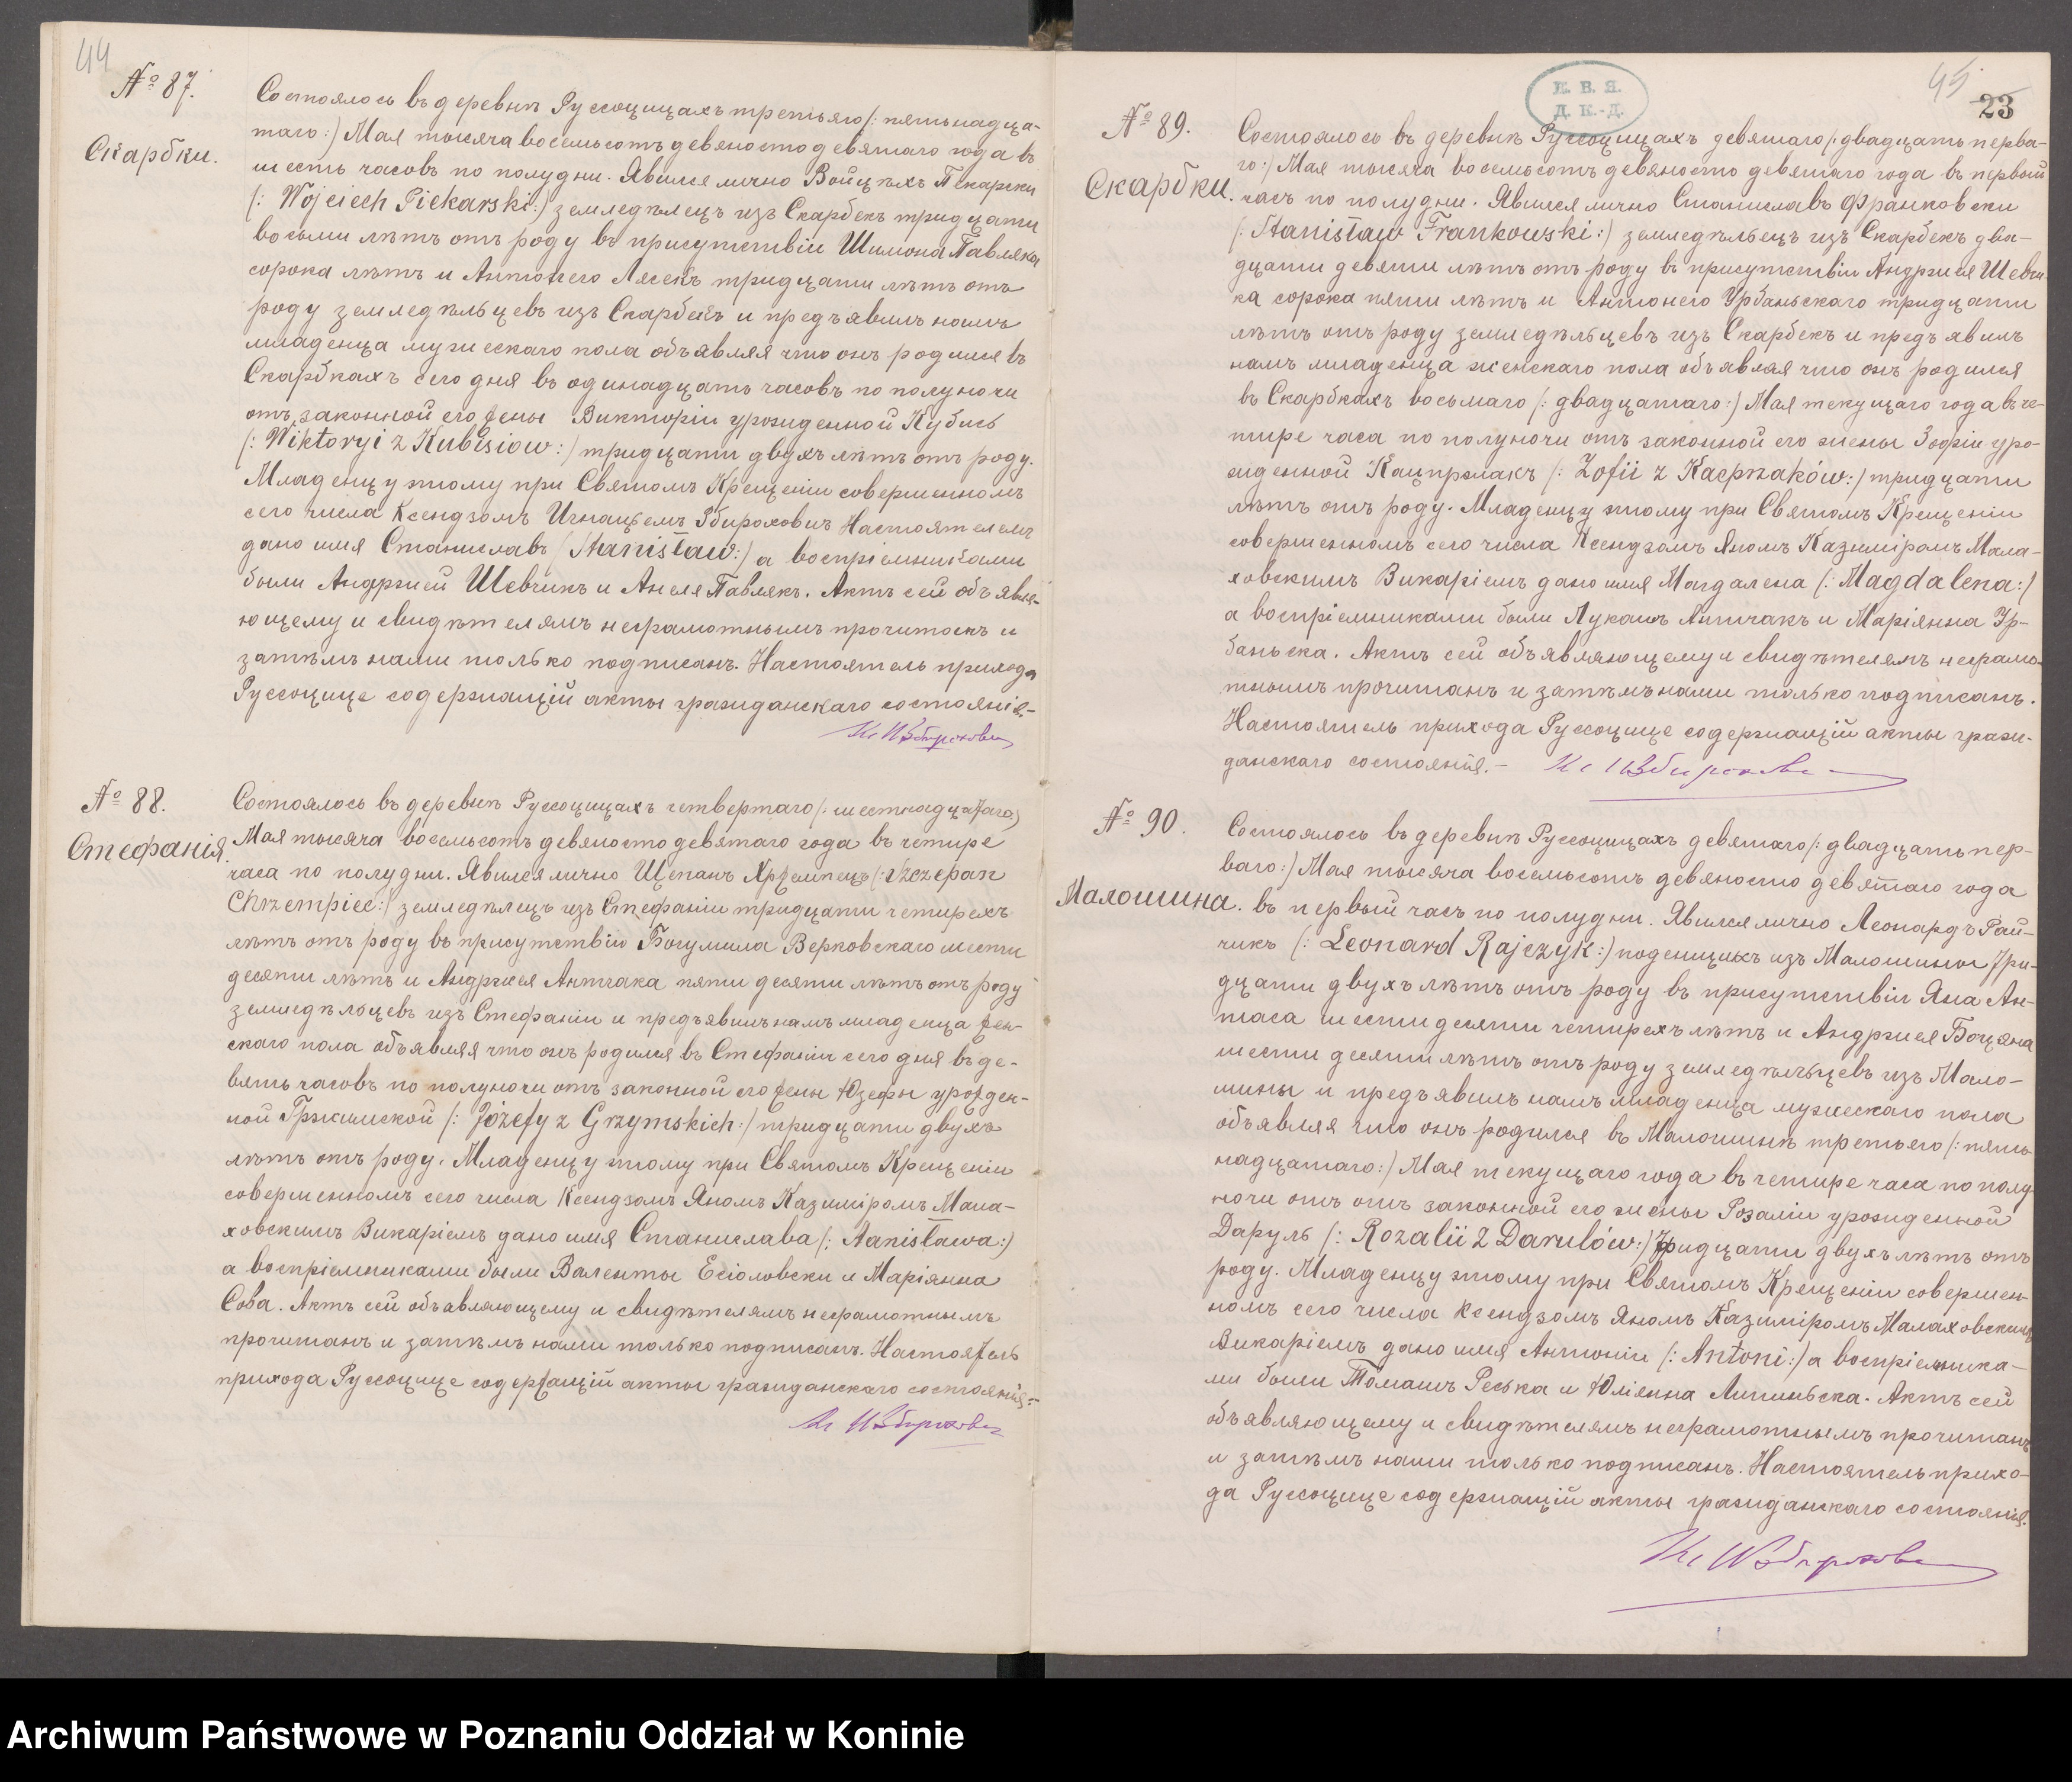 44
№ 87.
Скарбки.
Состоялось въ деревнѣ Руссоцицахъ третьяго /: пятьнадца-
таго :/ Мая тысяча восемьсотъ девяносто девятаго года въ
шесть часовъ по полудни. Явился лично Войцѣхъ Пекарски
/: Wojciech Piekarski :/ земледѣлецъ изъ Скарбекъ тридцати
восьми лѣтъ отъ роду въ присутствіи Шимона Павляка
сорока лѣтъ и Антонего Лясекъ тридцати лѣтъ отъ
роду земледѣльцевъ изъ Скарбекъ и предъявилъ намъ
младенца мужескаго пола объявляя что онъ родился въ
Скарбкахъ сего дня въ одинадцать часовъ по полуночи
отъ законной его жены Викторіи урожденной Кубись
/: Wiktoryi z Kubisiow :/ тридцати двухъ лѣтъ отъ роду.
Младенцу этому при Святомъ Крещеніи совершенномъ
сего числа Ксендзомъ Игнацемъ Збироховичъ Настоятелемъ
дано имя Станиславъ /: Stanisław :/ а воспріемниками
были Андржей Шевчикъ и Анеля Павлякъ. Актъ сей объявля-
ющему и свидѣтелямъ неграмотнымъ прочитанъ и
затѣмъ нами только подписанъ. Настоятель прихода
Руссоцице содержащій акты гражданскаго состоянія.-
№ 88.
Стефанія.
Состоялось въ деревнѣ Руссоцицахъ четвертаго /: шестнадцатаго :/
Мая тысяча восемьсотъ девяносто девятаго года въ четыре
часа по полудни. Явился лично Щепанъ Хржемпецъ /: Szczepan
Chrzempiec :/ земледѣлецъ изъ Стефаніи тридцати четырехъ
лѣтъ отъ роду въ присутствіи Богумила Верковскаго шести
десяти лѣтъ и Андржея Антчака пяти десяти лѣтъ отъ роду
земледѣльцевъ изъ Стефаніи и предъявилъ намъ младенца жен-
скаго пола объявляя что онъ родился въ Стефаніи сего дня въ де-
вять часовъ по полуночи отъ законной его жены Юзефы урожден-
ной Гржимской /: Józefy z Grzymskich :/ тридцати двухъ
лѣтъ отъ роду. Младенцу этому при Святомъ Крещеніи
совершенномъ сего числа Ксендзомъ Яномъ Казиміромъ Мала-
ховскимъ Викаріемъ дано имя Станислава /: Stanisława :/
а воспріемниками были Валенты Есіоловски и Маріянна
Сова. Актъ сей объявляющему и свидѣтелямъ неграмотнымъ
прочитанъ и затѣмъ нами только подписанъ. Настоятель
прихода Руссоцице содержащій акты гражданскаго состоянія.-
45
23
К. В. Я.
Д. К.-Д.
№ 89.
Скарбки.
Состоялось въ деревнѣ Руссоцицахъ девятаго /: двадцать перва-
го :/ Мая тысяча восемьсотъ девяносто девятаго года въ первый
часъ по полудни. Явился лично Станиславъ Франковски
/: Stanisław Frankowski :/ земледѣльецъ изъ Скарбекъ два-
дцати девяти лѣтъ отъ роду въ присутствіи Андржея Шевчи-
ка сорока пяти лѣтъ и Антонего Урбаньскаго тридцати
лѣтъ отъ роду земледѣльцевъ изъ Скарбекъ и предъявилъ
намъ младенца женскаго пола объявляя что онъ родился
въ Скарбкахъ восьмаго /: двадцатаго :/ Мая текущаго года въ че-
тыре часа по полуночи отъ законной его жены Зофіи уро-
жденной Кацпржакъ /: Zofii z Kacprzaków :/ тридцати
лѣтъ отъ роду. Младенцу этому при Святомъ Крещеніи
совершенномъ сего числа Ксендзомъ Яномъ Казиміромъ Мала-
ховскимъ Викаріемъ дано имя Магдалена /: Magdalena :/
а воспріемниками были Лукашъ Антчакъ и Маріянна Ур-
баньска. Актъ сей объявляющему и свидѣтелямъ неграмо-
тнымъ прочитанъ и затѣмъ нами только подписанъ.
Настоятель прихода Руссоцице содержащій акты граж-
данскаго состоянія.-
№ 90.
Малошина.
Состоялось въ деревнѣ Руссоцицахъ девятаго /: двадцать пер-
ваго :/ Мая тысяча восемьсотъ девяносто девятаго года
въ первый часъ по полудни. Явился лично Леонардъ Рай-
чикъ /: Leonard Rajczyk :/ поденщикъ изъ Малошины три-
дцати двухъ лѣтъ отъ роду въ присутствіи Яна Ан-
таса шестидесяти четырехъ лѣтъ и Андржея Боцяна
шести десяти лѣтъ отъ роду земледѣльцевъ изъ Мало-
шины и предъявилъ намъ младенца мужескаго пола
объявляя что онъ родился въ Малошинѣ третьего /: пять
надцатаго :/ Мая текущаго года въ четыре часа по полу
ночи отъ отъ законной его жены Розаліи урожденной
Даруль /: Rozalii z Darulów :/ тридцати двухъ лѣтъ отъ
роду. Младенцу этому при Святомъ Крещеніи совершен-
номъ сего числа Ксендзомъ Яномъ Казиміромъ Малаховскимъ
Викаріемъ дано имя Антоніи /: Antoni :/ а воспріемника-
ми были Томашъ Реська и Юліянна Липиньска. Актъ сей
объявляющему и свидѣтелямъ неграмотнымъ прочитанъ
и затѣмъ нами только подписанъ. Настоятель прихо-
да Руссоцице содержащій акты гражданскаго состоянія.
Archiwum Państwowe w Poznaniu Oddział w Koninie